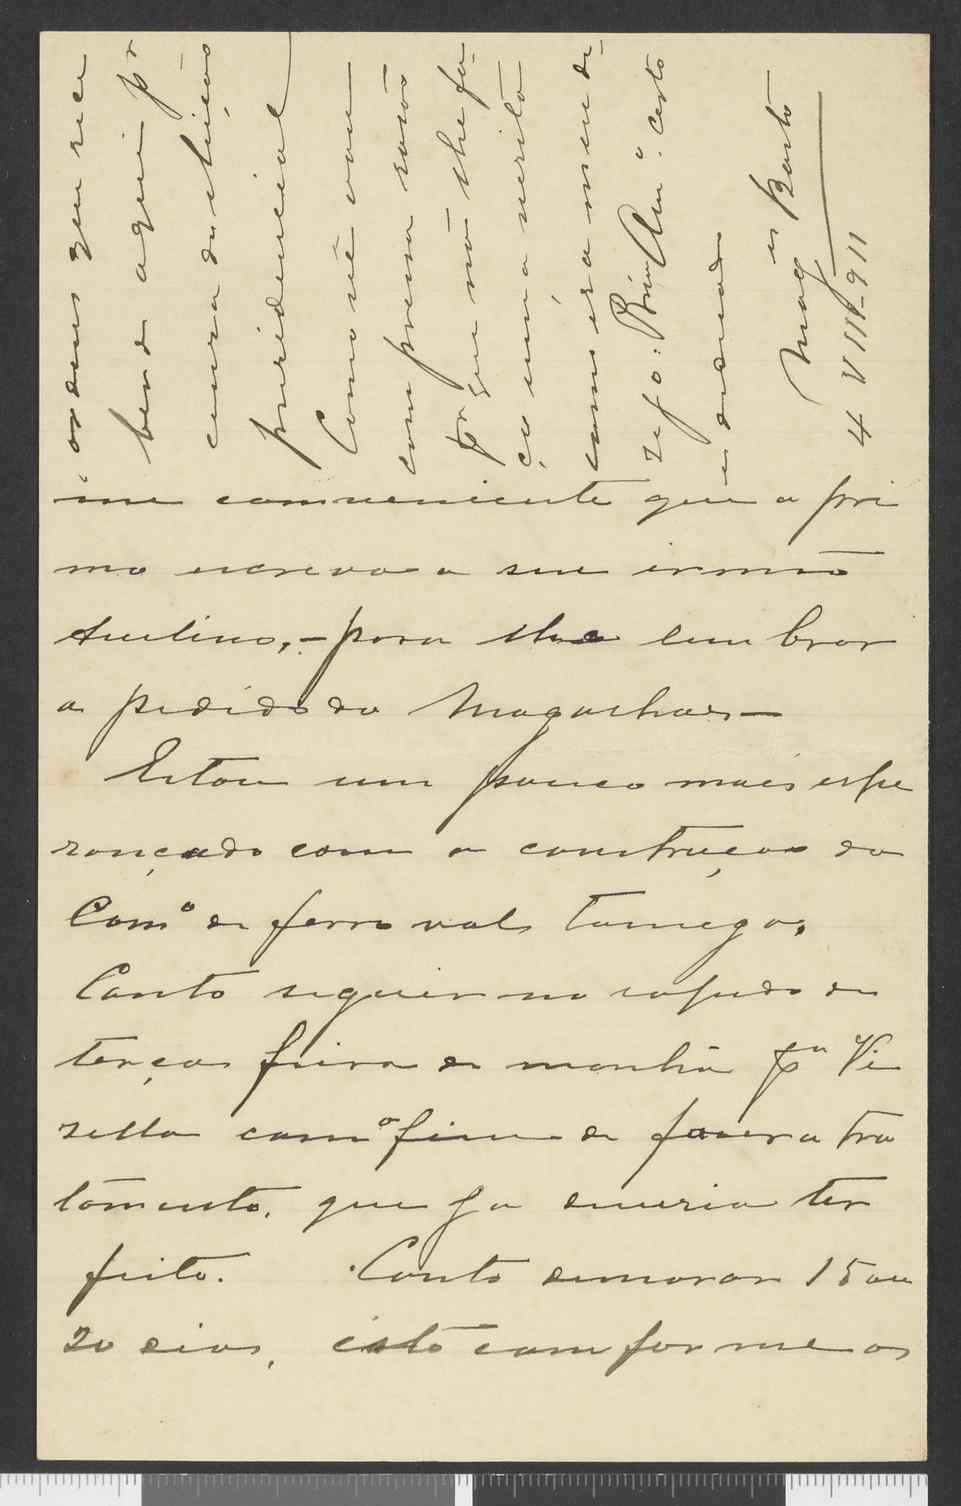 me comveniente que a pri
mo escreva a seu irmão
Avelino, - para lhe lembrar
o pedido do Magalhães -
Estou um pouco mais espe
rançado com a construção do
Camº de ferro vale Tamega.
Conto seguir no rapido de
terça feira de manhã pª Vi
zella com o fim de fazer o tra
tamento, que ja deveria ter
feito. Conto demorar 15 ou
20 dias, isto comforme as
ordens que rece
ber de aqui pr
causa da eleição
presidencial
Como vê vou
com pressa razão
pr que não lhe fa-
ço uma visita
como era meu de-
zejo: Primº Amº: certo
e dedicado
Mag es Basto
4 VIII-911